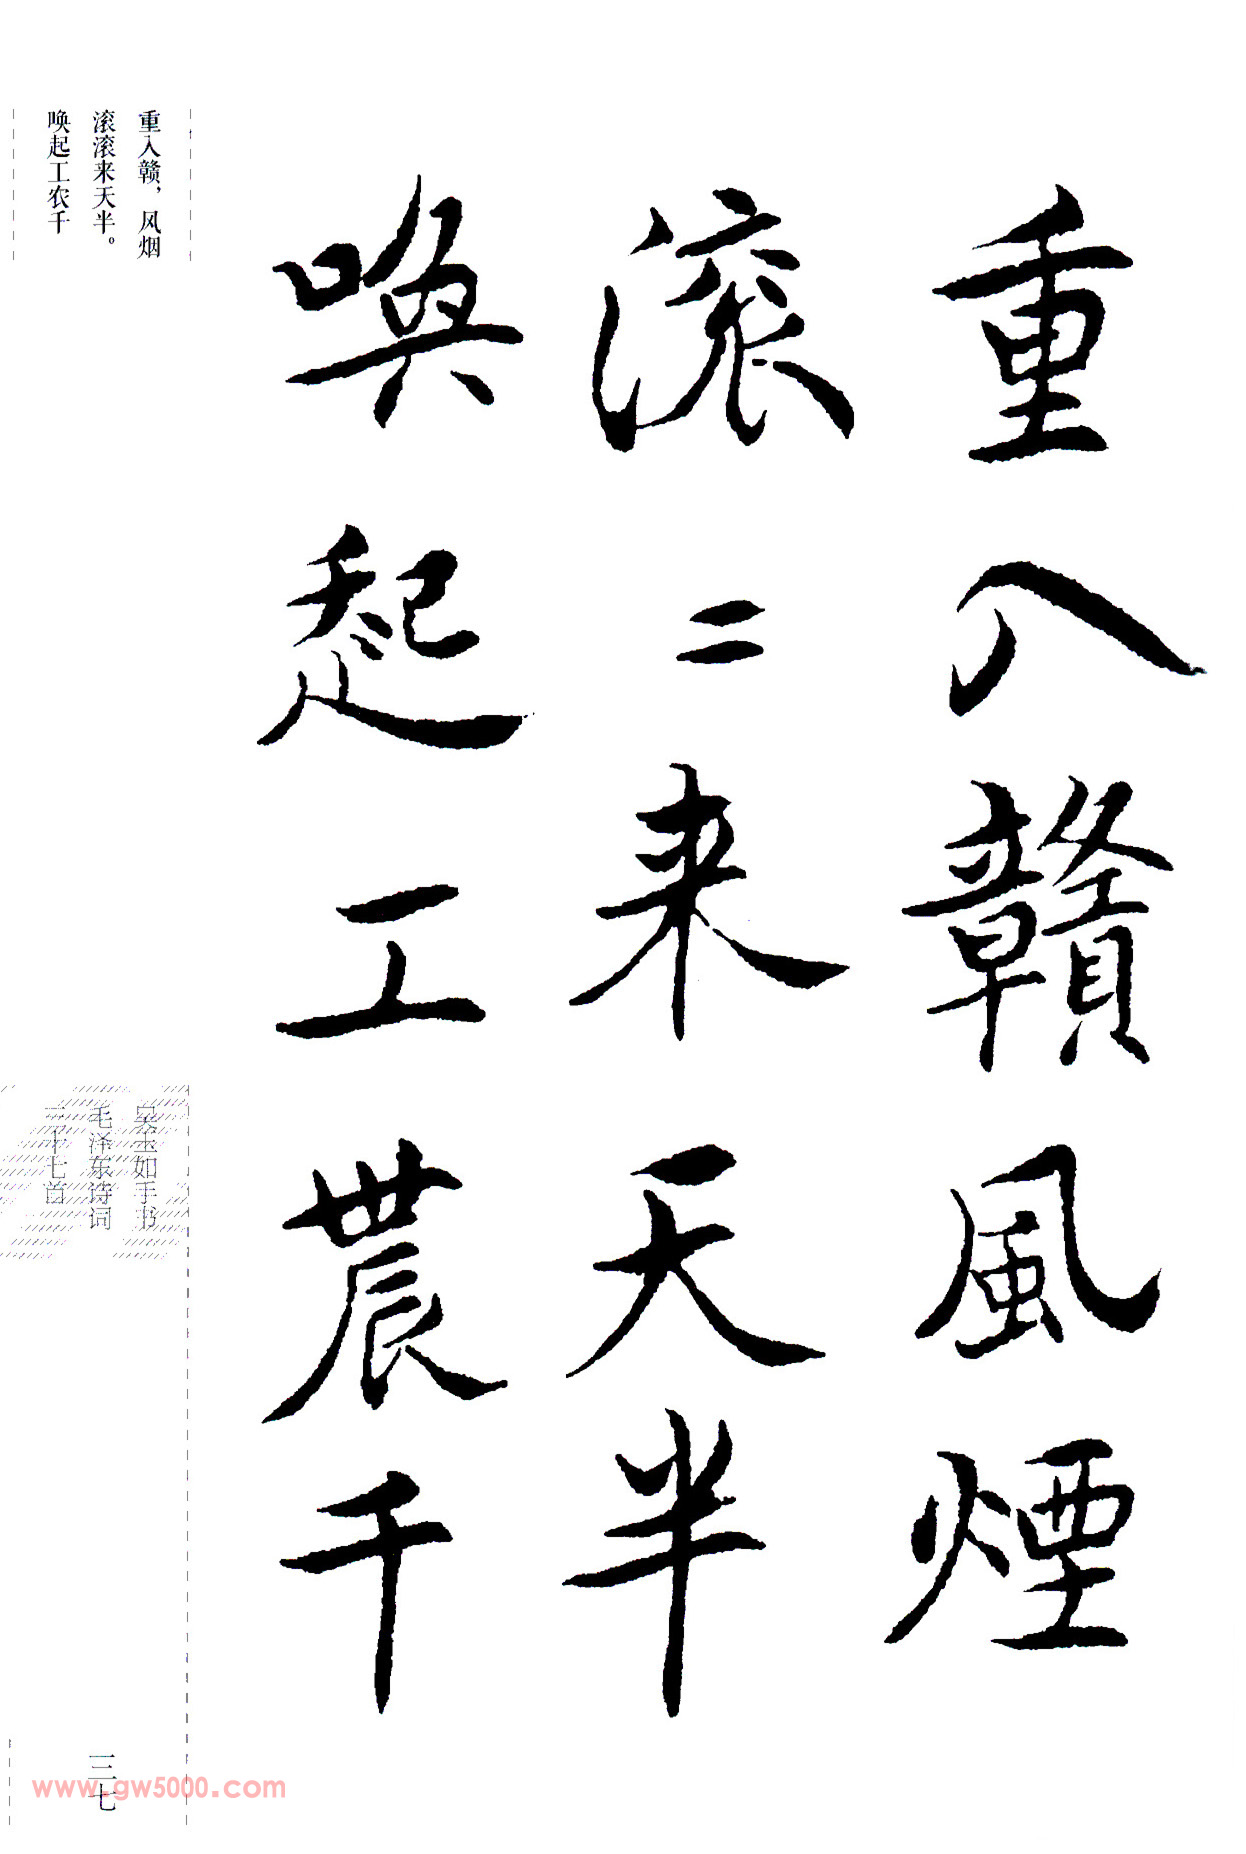 重入贛風煙
滚二来天半
喚起工農千
重入赣，风烟
滚滚来天半。
唤起工农千
吴玉如手书
毛泽东诗词
三十七首
三七
www.gw5000.com